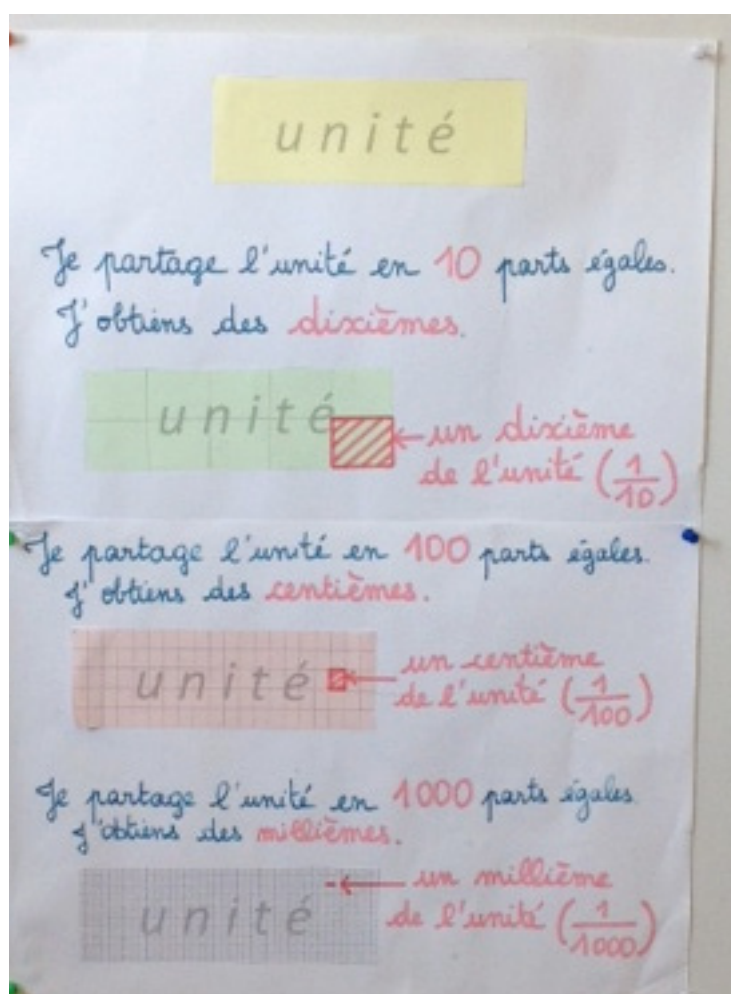 unité
Je partage l'unité en 10 parts égales.
J'obtiens des dixièmes.
unité
un dixième
de l'unité (1/10)
Je partage l'unité en 100 parts égales.
J'obtiens des centièmes.
unité
un centième
de l'unité (1/100)
Je partage l'unité en 1000 parts égales.
J'obtiens des millièmes.
unité
un millième
de l'unité (1/1000)